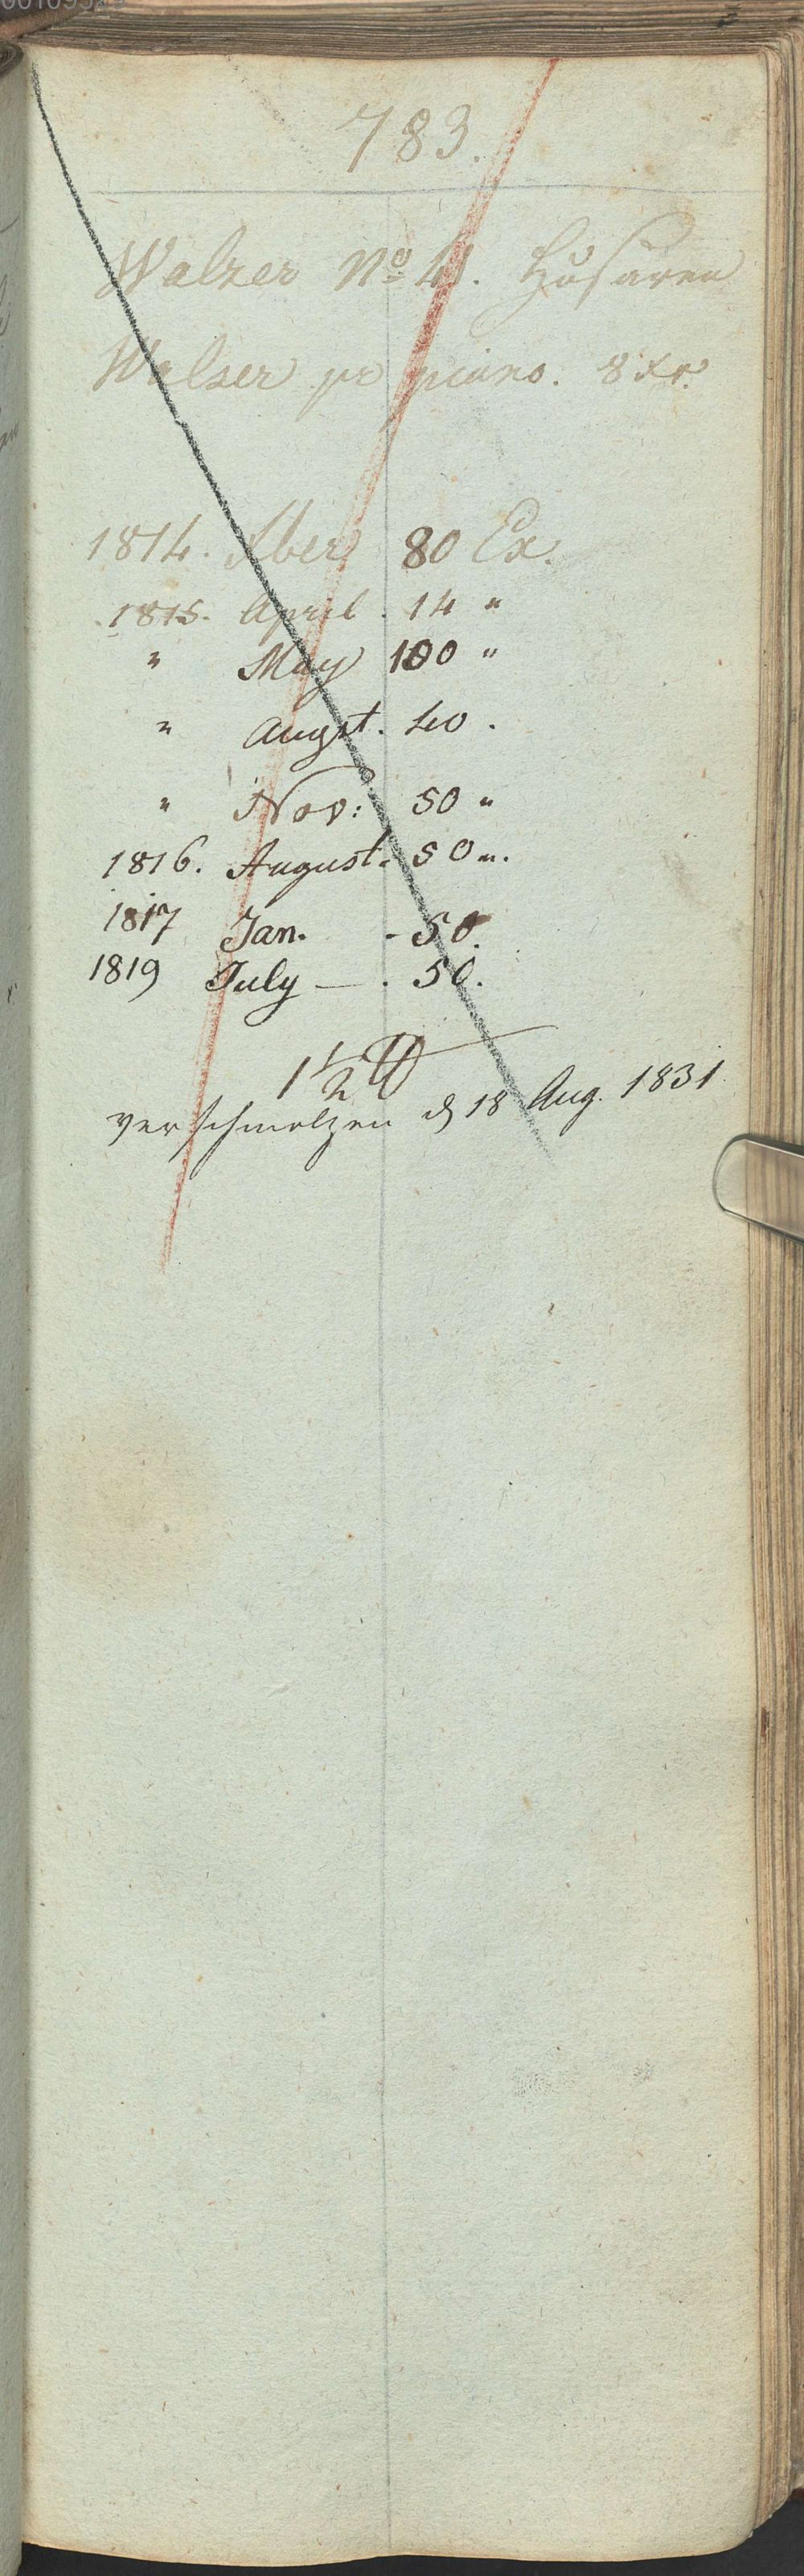 783.
Walzer No 4. Husaren
Walzer pr piano. 8 xr.
1814. Xber 80 Ex.
1815. April. 14 "
" May 100 "
" Augst. 40.
" Nov: 50 "
1816. August. 50 ".
1817 Jan. - 50.
1819 July — . 50.
1½ ℔
verschmolzen d 18 Aug. 1831